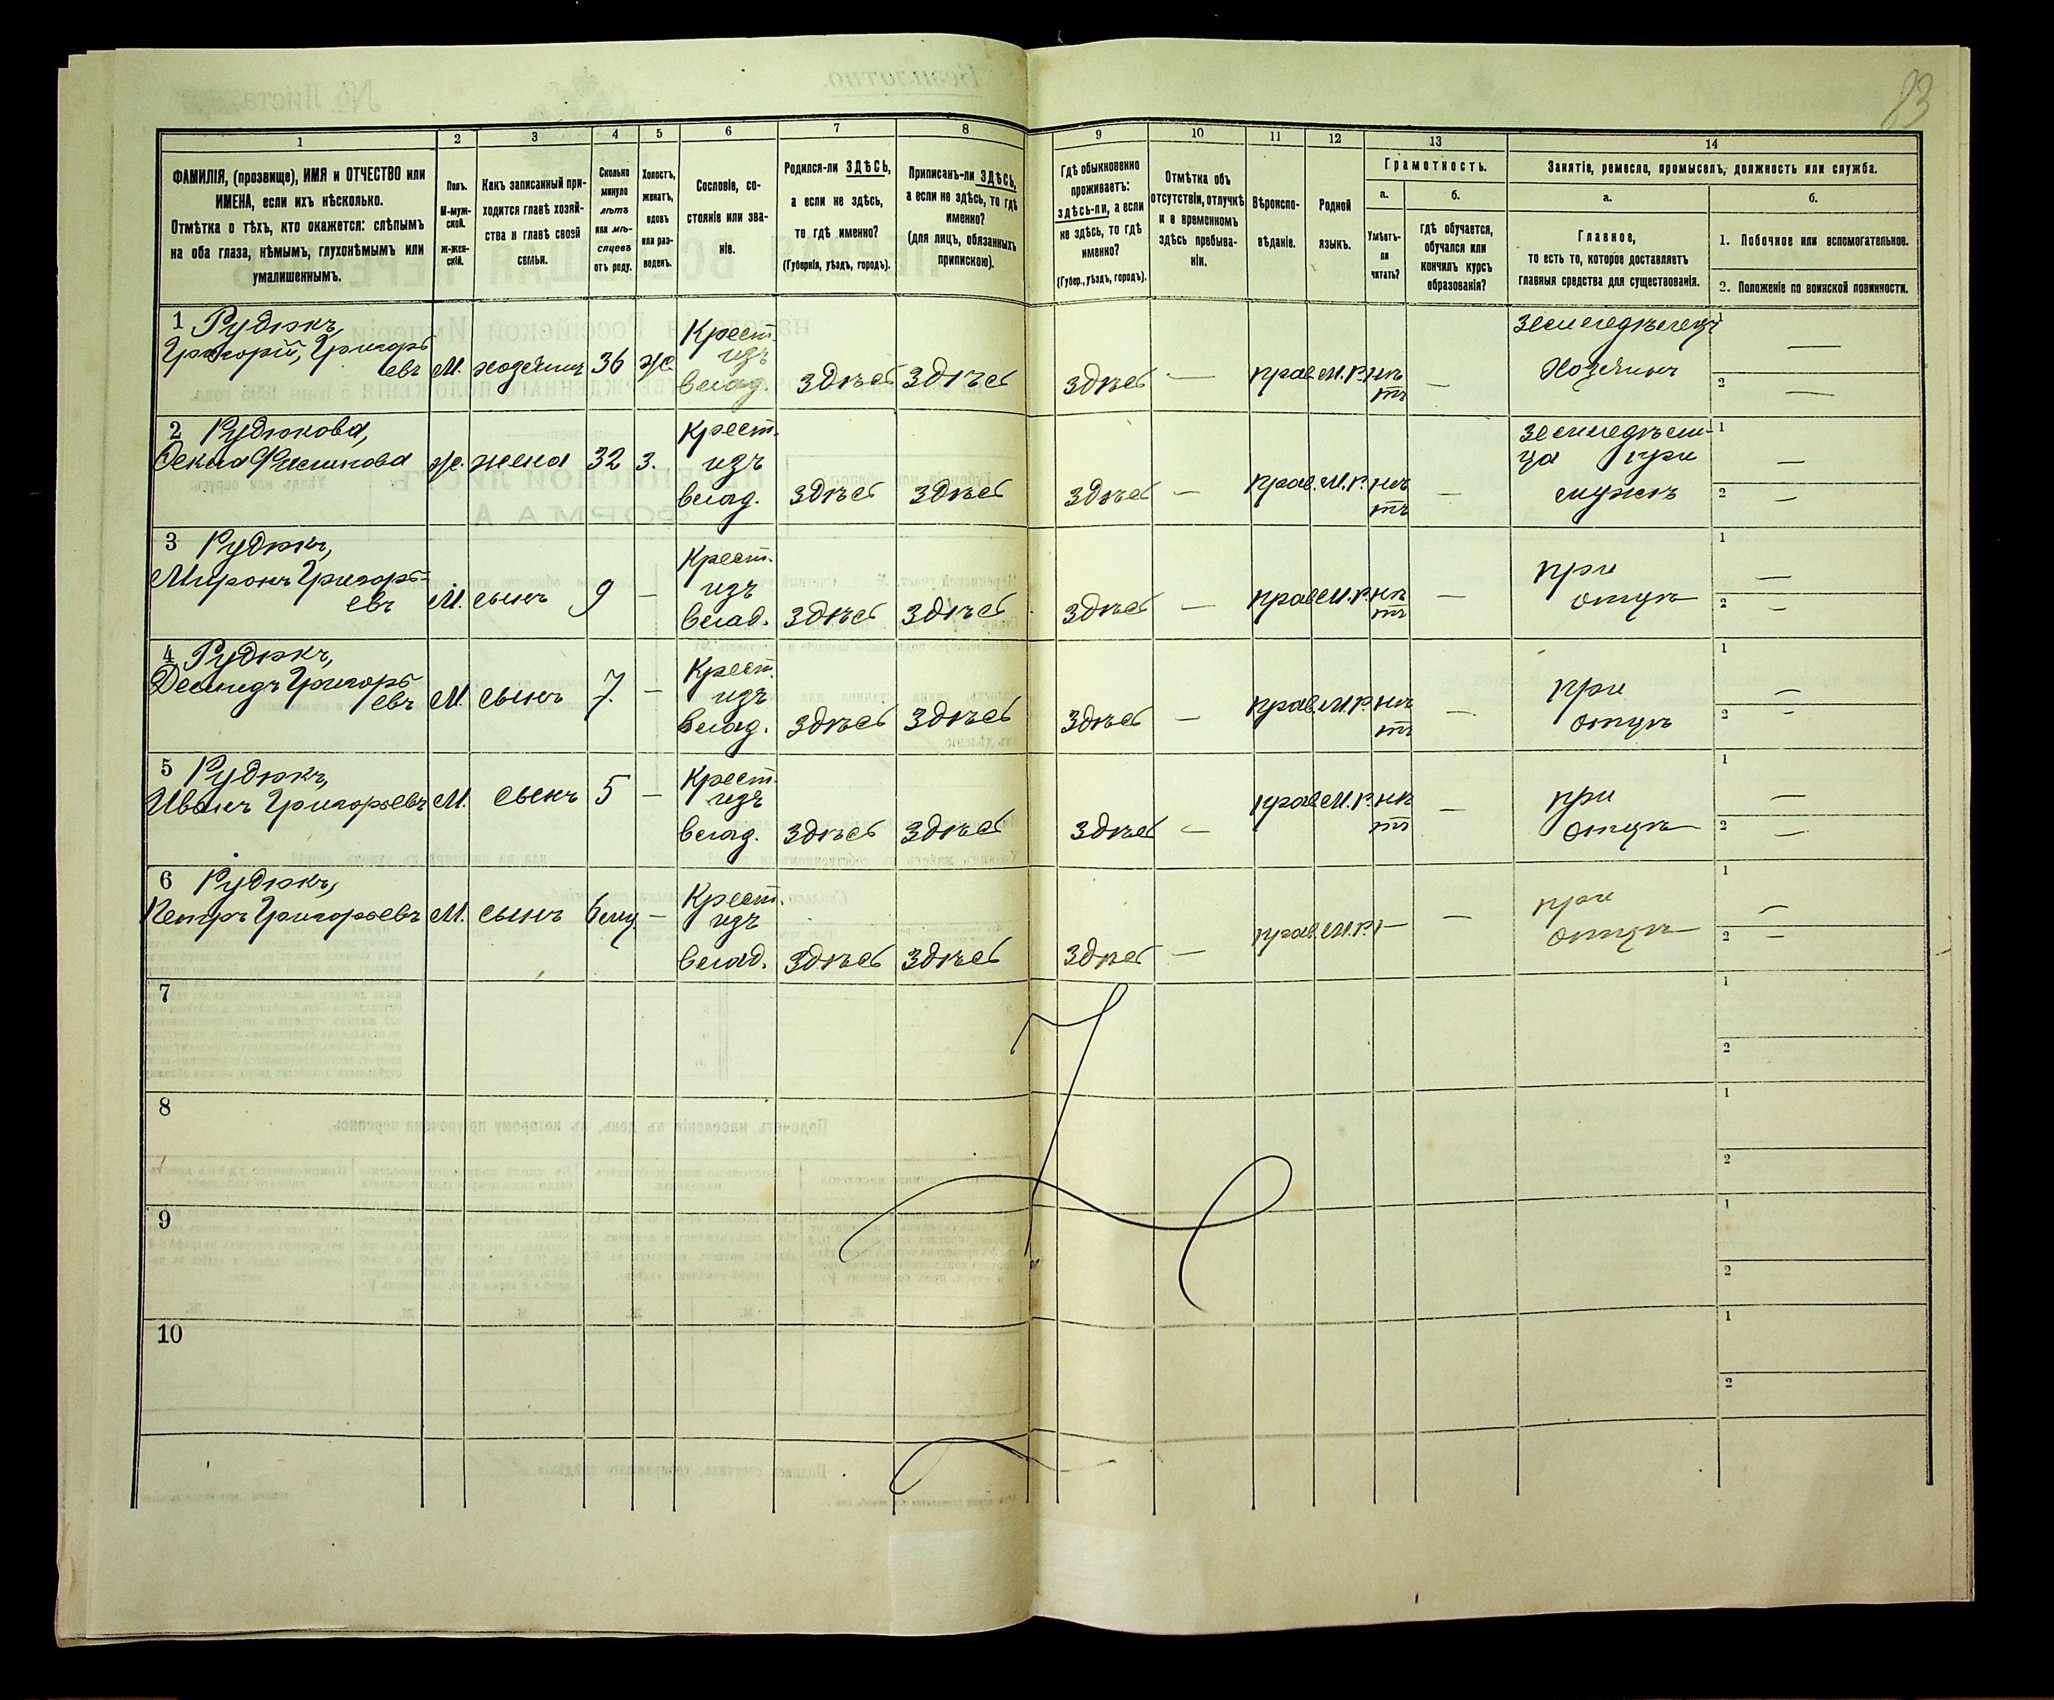 83
1
2
3
4
5
6
7
8
9
10
11
12
13
14
ФАМИЛІЯ, (прозвище), ИМЯ и ОТЧЕСТВО или
ИМЕНА, если ихъ нѣсколько.
Отмѣтка о тѣхъ, кто окажется: слѣпымъ
на оба глаза, нѣмымъ, глухонѣмымъ или
умалишеннымъ.
Полъ.
М-муж-
ской.
Ж-жен-
скій.
Какъ записанный при-
ходится главѣ хозяй-
ства и главѣ своей
семьи.
Сколько
минуло
лѣтъ
или мѣ-
сяцевъ
отъ роду.
Холостъ,
женатъ,
вдовъ
или раз-
веденъ.
Сословіе, со-
стояніе или зва-
ніе.
Родился-ли ЗДѢСЬ,
а если не здѣсь,
то гдѣ именно?
(Губернія, уѣздъ, городъ).
Приписанъ-ли ЗДѢСЬ,
а если не здѣсь, то гдѣ
именно?
(для лицъ, обязанныхъ
припискою).
Гдѣ обыкновенно
проживаетъ:
здѣсь-ли, а если
не здѣсь, то гдѣ
именно?
(Губер., уѣздъ, городъ).
Отмѣтка объ
отсутствіи, отлучкѣ
и о временномъ
здѣсь пребыва-
ніи.
Вѣроиспо-
вѣданіе.
Родной
языкъ.
Грамотность.
а.
Умѣетъ-
ли
читать?
б.
гдѣ обучается,
обучался или
кончилъ курсъ
образованія?
Занятіе, ремесло, промыселъ, должность или служба.
а.
Главное,
то есть то, которое доставляетъ
главныя средства для существованія.
б.
1. Побочное или вспомогательное.
2. Положеніе по воинской повинности.
1 Рудюкъ,
Григорій, Григорь
евъ М. хозяинъ 36 ж. Крест. изъ влад. здѣсь здѣсь здѣсь — прав. М.Р. нѣтъ — земледѣлецъ хозяинъ 1 — 2 —
2 Рудюкова,
Фекла Филимонова ж. жена 32 з. Крест. изъ влад. здѣсь здѣсь здѣсь — прав. М.Р. нѣтъ — земледѣли-ца при мужѣ 1 — 2 —
3 Рудюкъ,
Миронъ Григорь-
евъ М. сынъ 9 — Крест. изъ влад. здѣсь здѣсь здѣсь — прав. М.Р. нѣтъ — при отцѣ 1 — 2 —
4 Рудюкъ,
Демидъ Григорь
евъ М. сынъ 7. — Крест. изъ влад. здѣсь здѣсь здѣсь — прав. М.Р. нѣтъ — при отцѣ 1 — 2 —
5 Рудюкъ,
Иванъ Григорьевъ М. сынъ 5 — Крест. изъ влад. здѣсь здѣсь здѣсь — прав. М.Р. нѣтъ — при отцѣ 1 — 2 —
6 Рудюкъ,
Петръ Григорьевъ М. сынъ 6 мц. — Крест. изъ влад. здѣсь здѣсь здѣсь — прав. М.Р. — — при отцѣ 1 — 2 —
7 1 2
8 1 2
9 1 2
10 1 2